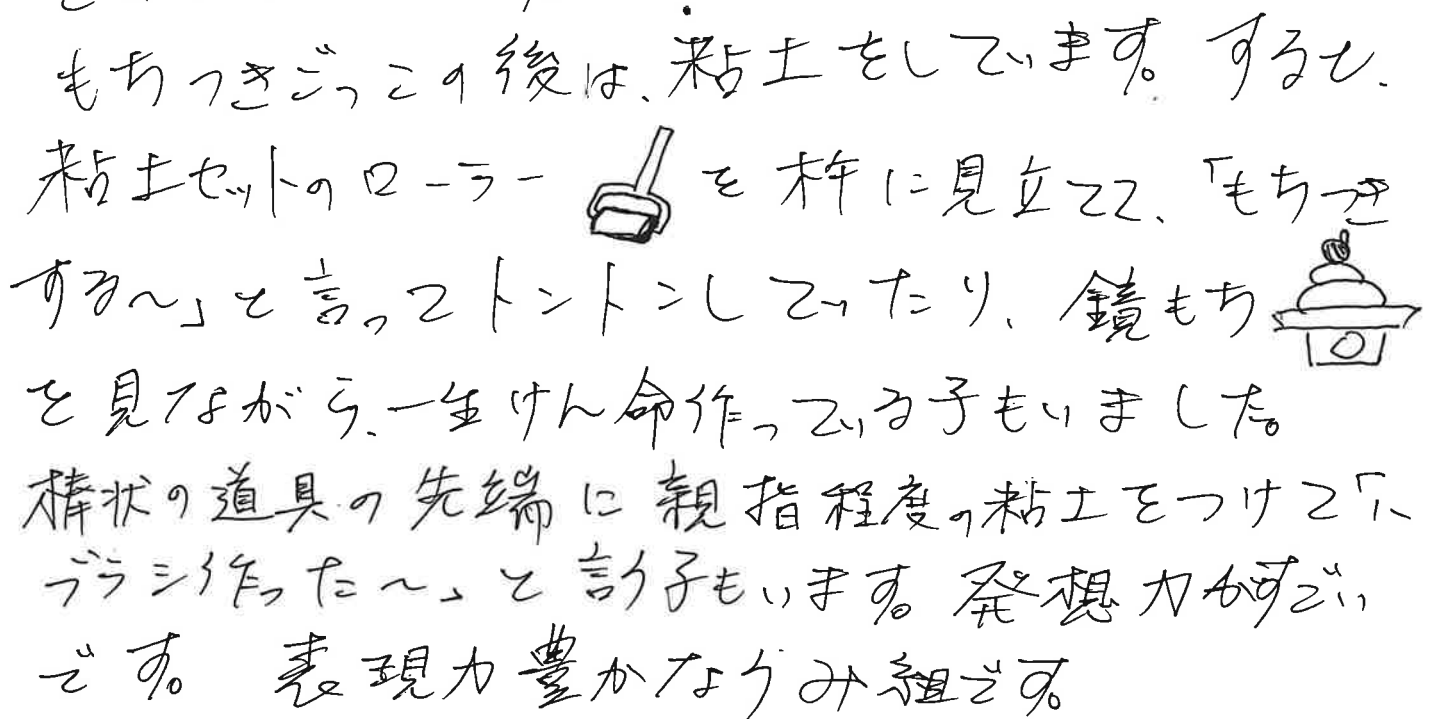 もちつきごっこの後は、粘土をしています。すると、
粘土セットのローラーを杵に見立てて、「もちつき
する〜」と言ってトントンしていたり、鏡もち
を見ながら、一生けん命作っている子もいました。
棒状の道具の先端に親指程度の粘土をつけて「ハ
ブラシ作った〜」と言う子もいます。発想力がすごい
です。表現力豊かなうみ組です。